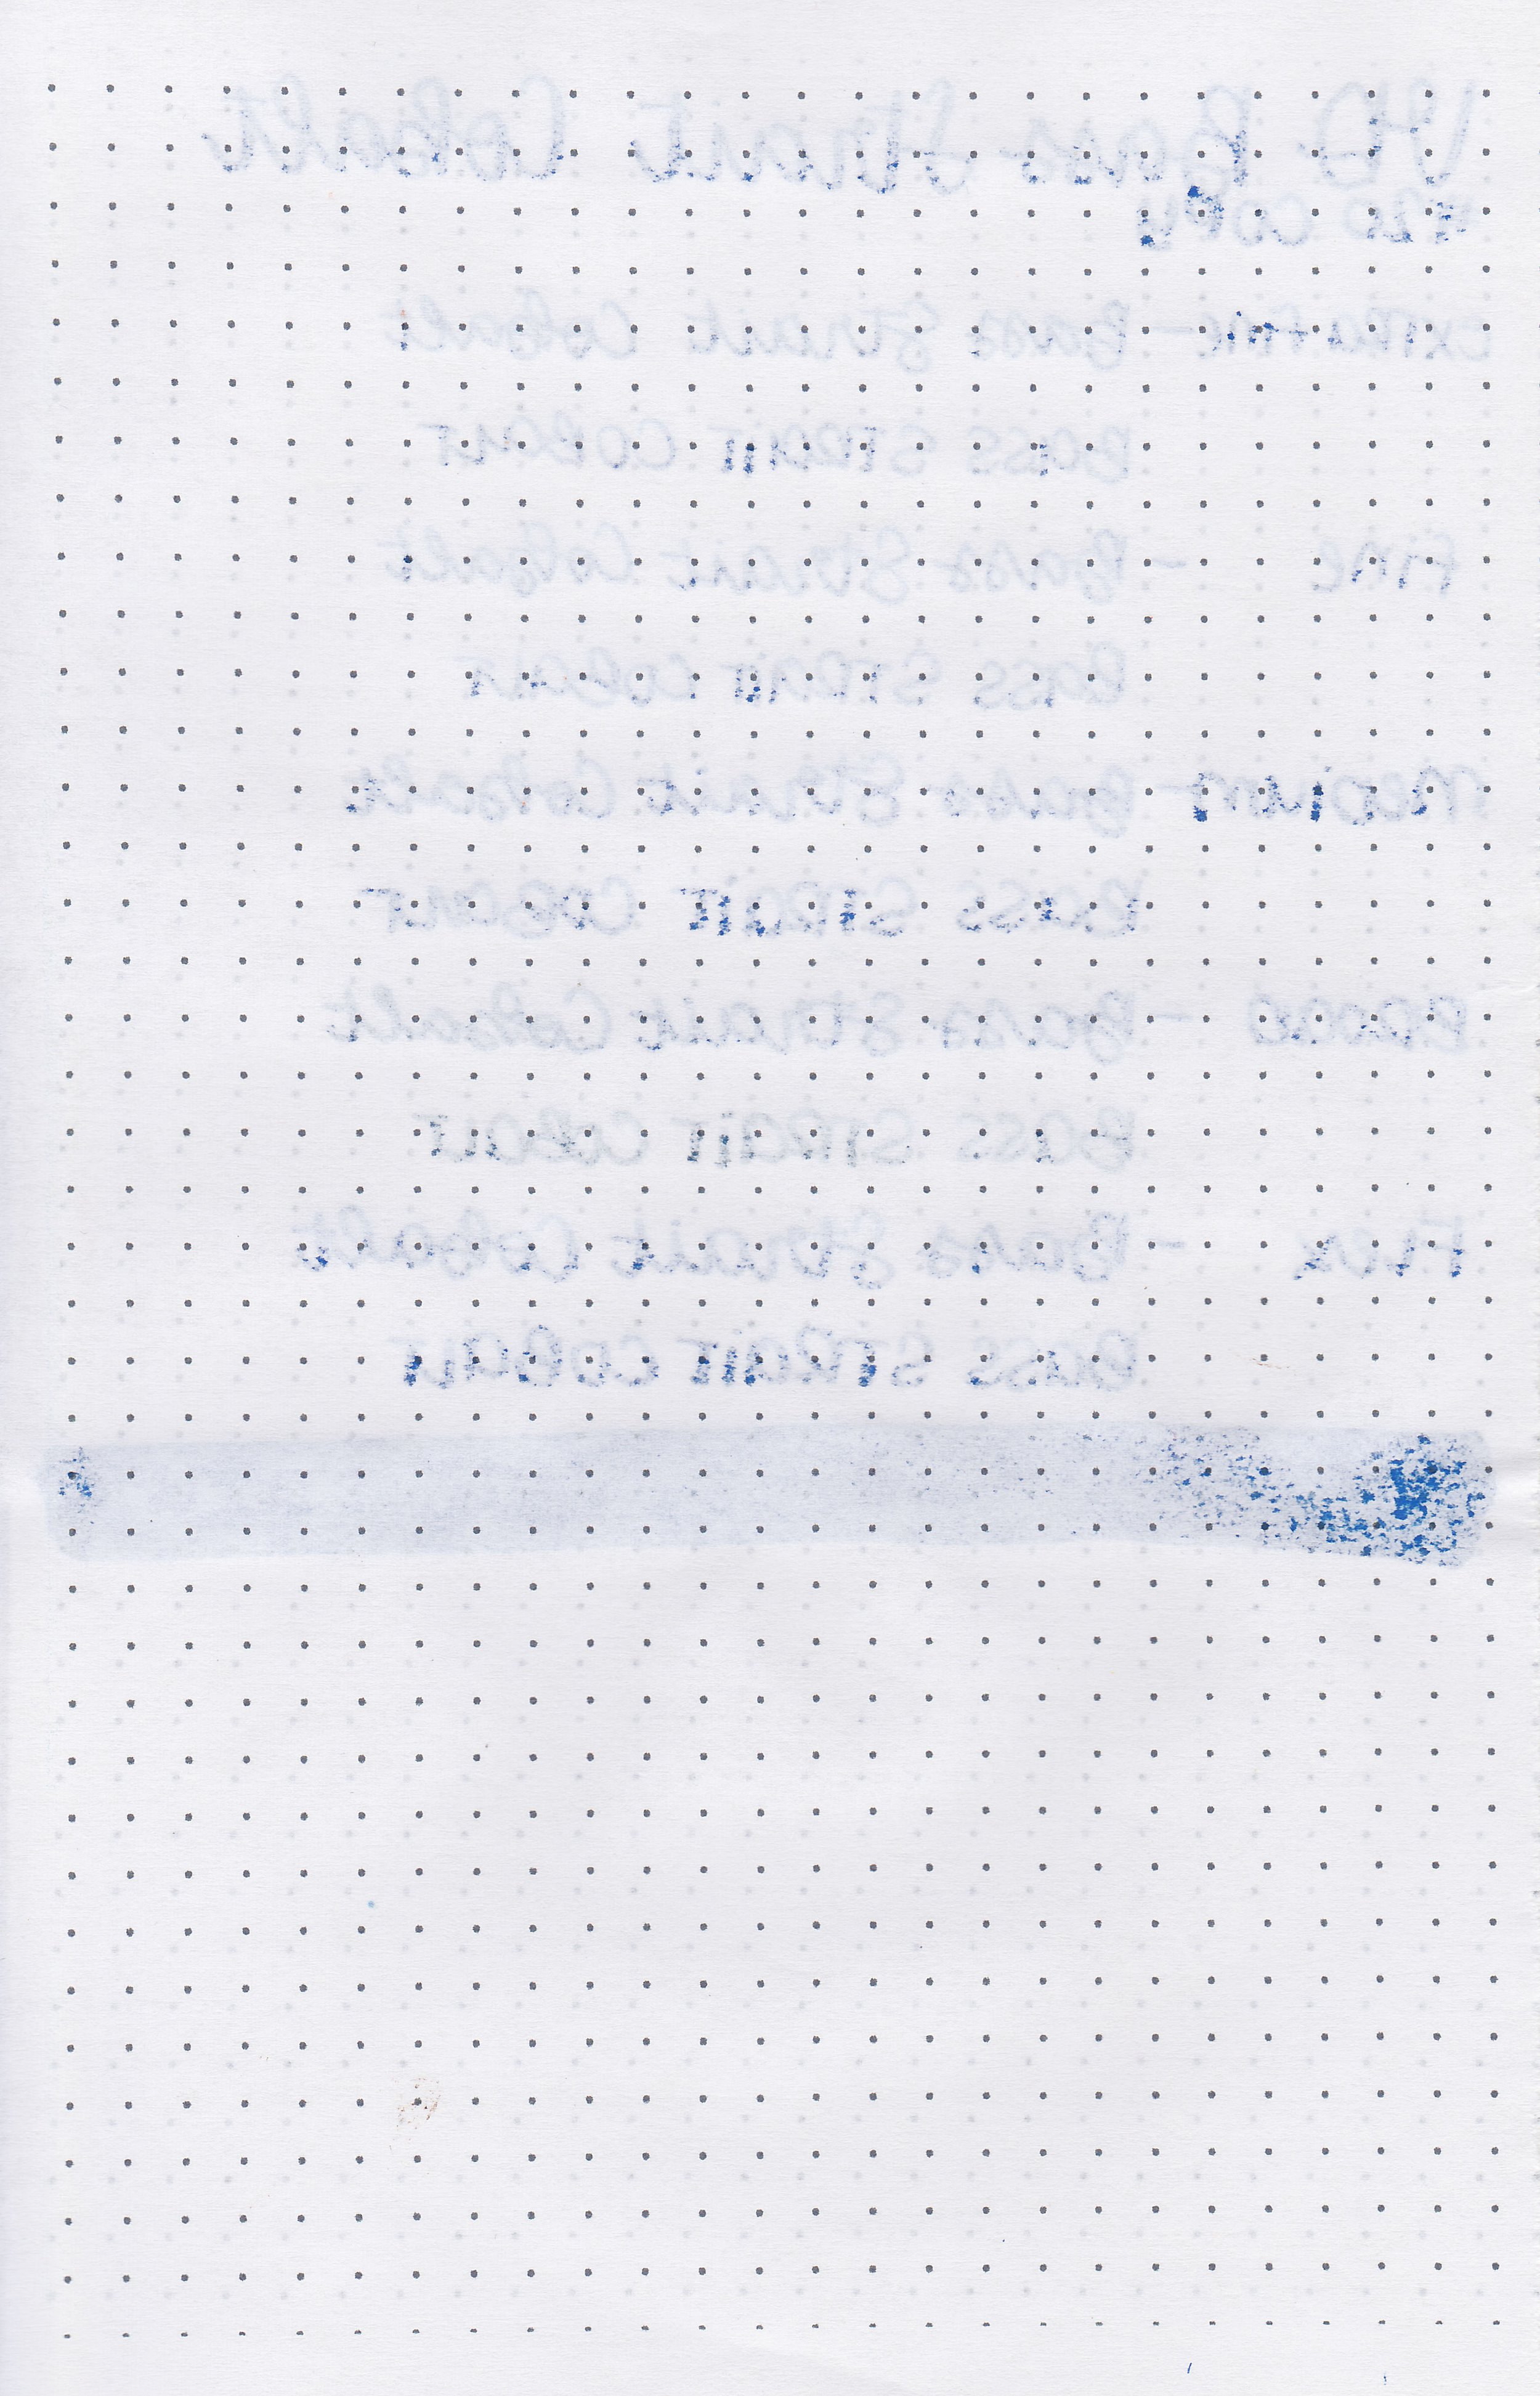 VTA Bass Strait Cobalt
#20 COPY
Extra fine - Bass Strait Cobalt
BASS STRAIT COBALT
Fine - Bass Strait Cobalt
BASS STRAIT COBALT
MEDIUM - Bass Strait Cobalt
BASS STRAIT COBALT
BROAD - Bass Strait Cobalt
BASS STRAIT COBALT
Flex - Bass Strait Cobalt
BASS STRAIT COBALT